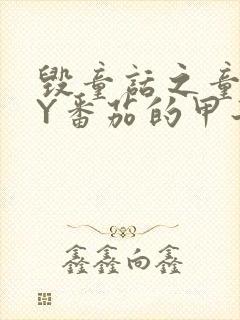 毁童话之童
Y番茄的甲
鑫鑫向鑫